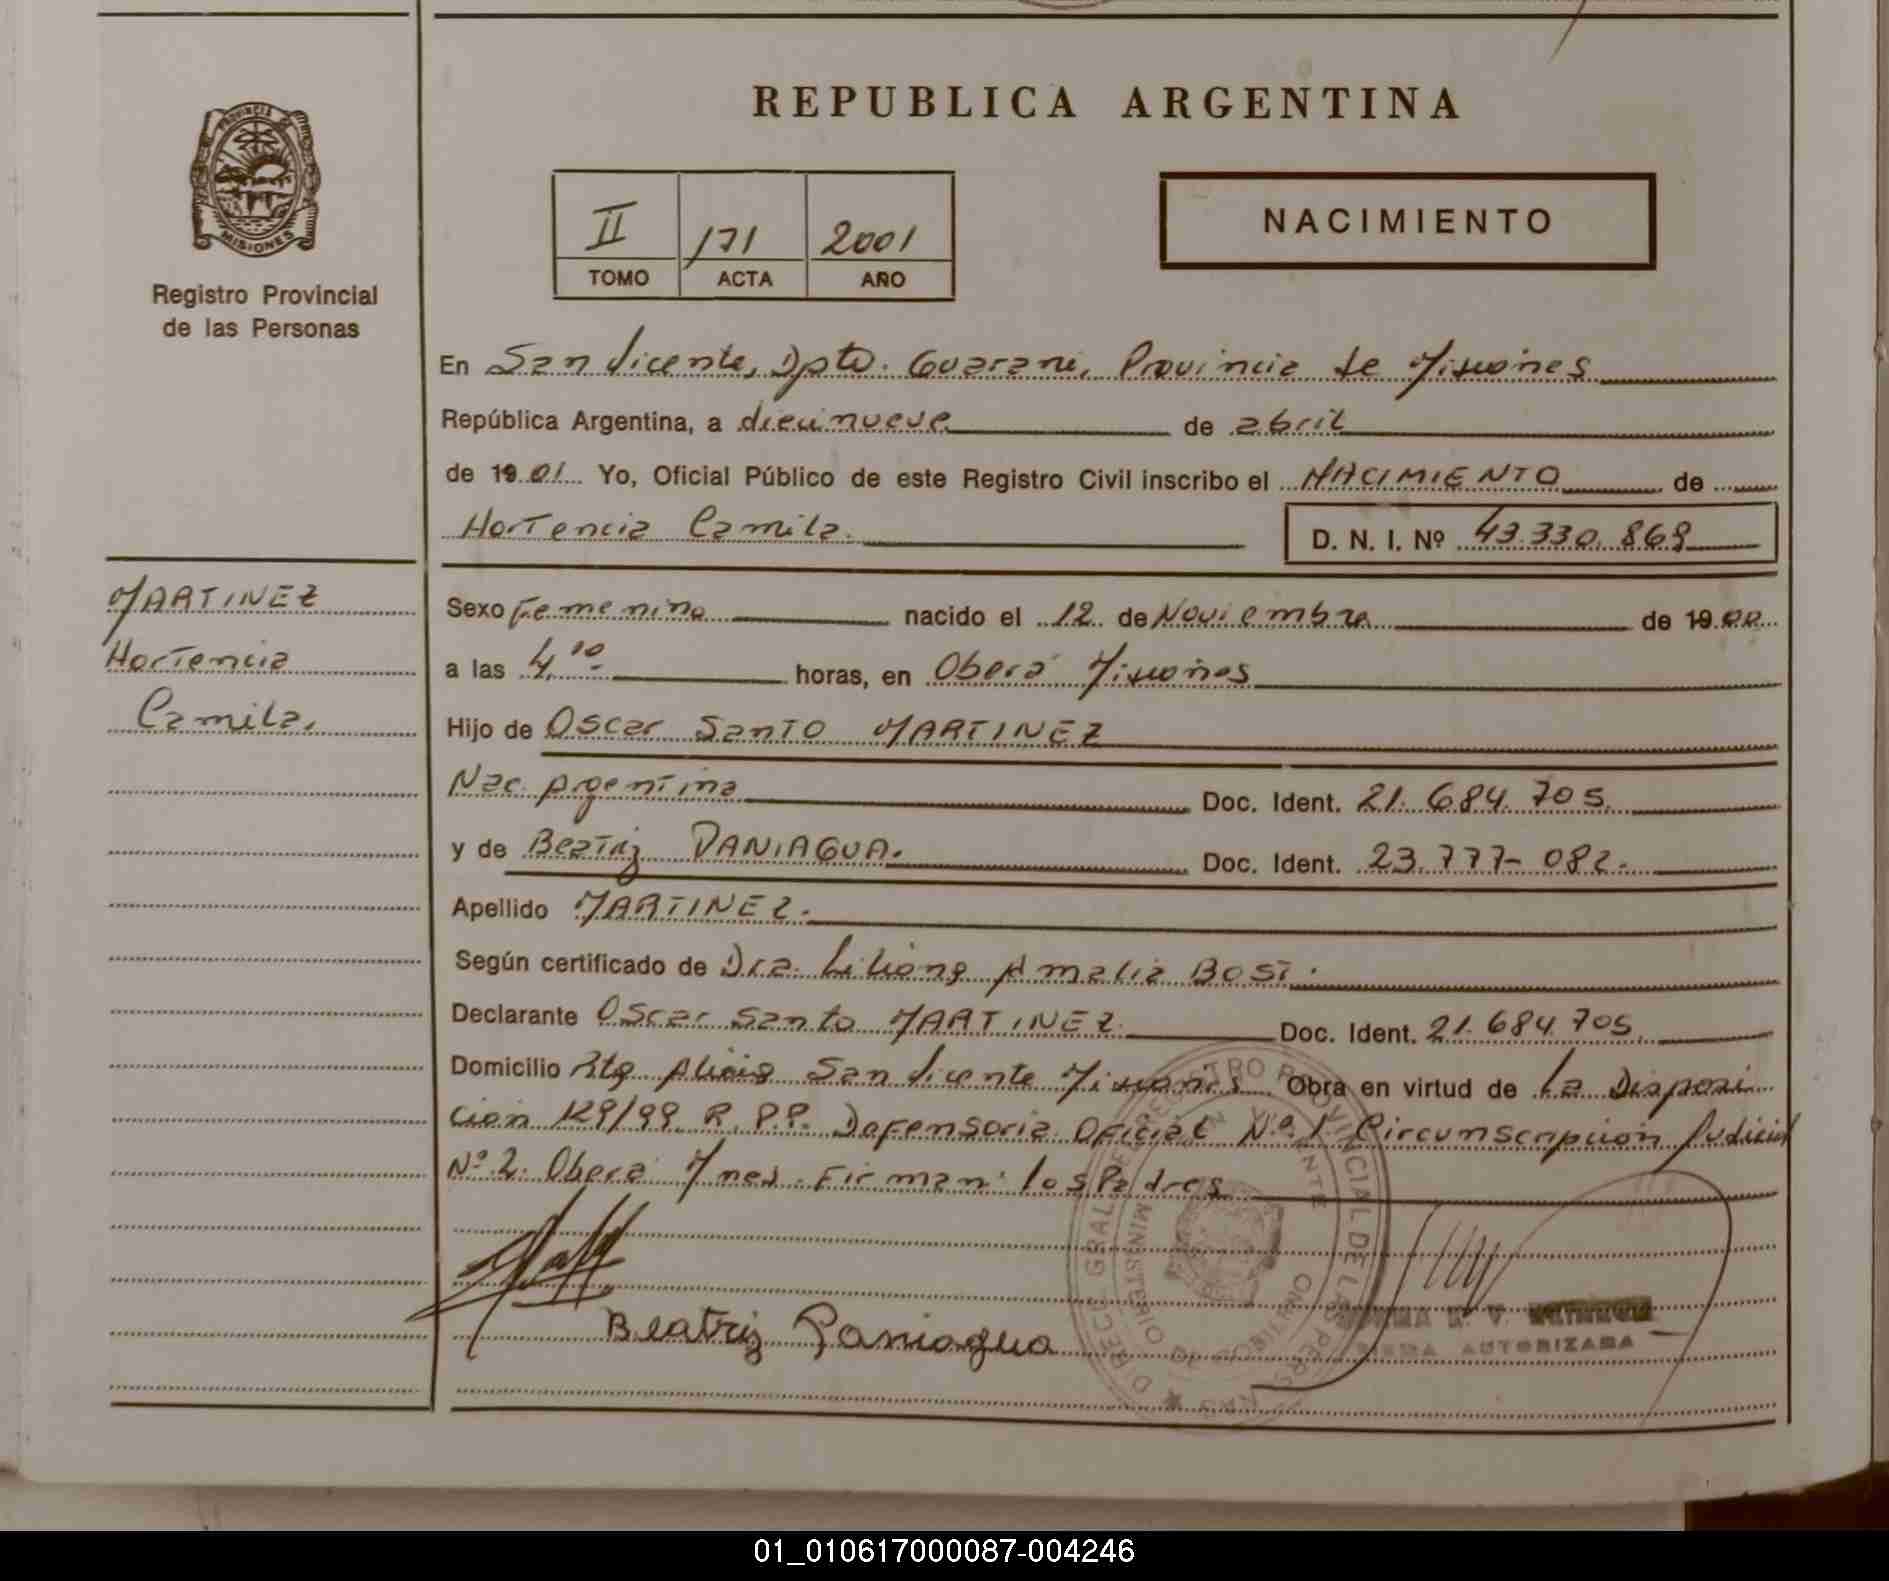 REPUBLICA ARGENTINA
PROVINCIA DE
MISIONES
Registro Provincial
de las Personas
II 171 2001
TOMO ACTA AÑO
NACIMIENTO
En San Vicente, Dpto. Guarani, Provincia de Misiones
República Argentina, a diecinueve de abril
de 19 01 Yo, Oficial Público de este Registro Civil inscribo el NACIMIENTO de
Hortencia Camila. D. N. I. Nº 43.330.869
MARTINEZ
Hortencia
Camila.
Sexo Femenino nacido el 12 de Noviembre de 19 00
a las 4,10 horas, en Oberá Misiones
Hijo de Oscar Santo MARTINEZ
Nac. Argentina Doc. Ident. 21.684.705
y de Beatriz PANIAGUA. Doc. Ident. 23.777-082.
Apellido MARTINEZ.
Según certificado de Dra. Liliana Amalia Bost.
Declarante Oscar Santo MARTINEZ Doc. Ident. 21.684.705
Domicilio Rta Alicia San Vicente Misiones Obra en virtud de La Disposi
cion 129/99 R.P.P. Defensoria Oficial Nº 1 Circunscripcion Judicial
Nº 2. Oberá Mnes. Firman: los Padres
Beatriz Paniagua
DIRECC. GRAL. DE REGISTRO PROVINCIAL DE LAS PERSONAS
MINISTERIO DE GOBIERNO
FIRMA AUTORIZADA
01_010617000087-004246